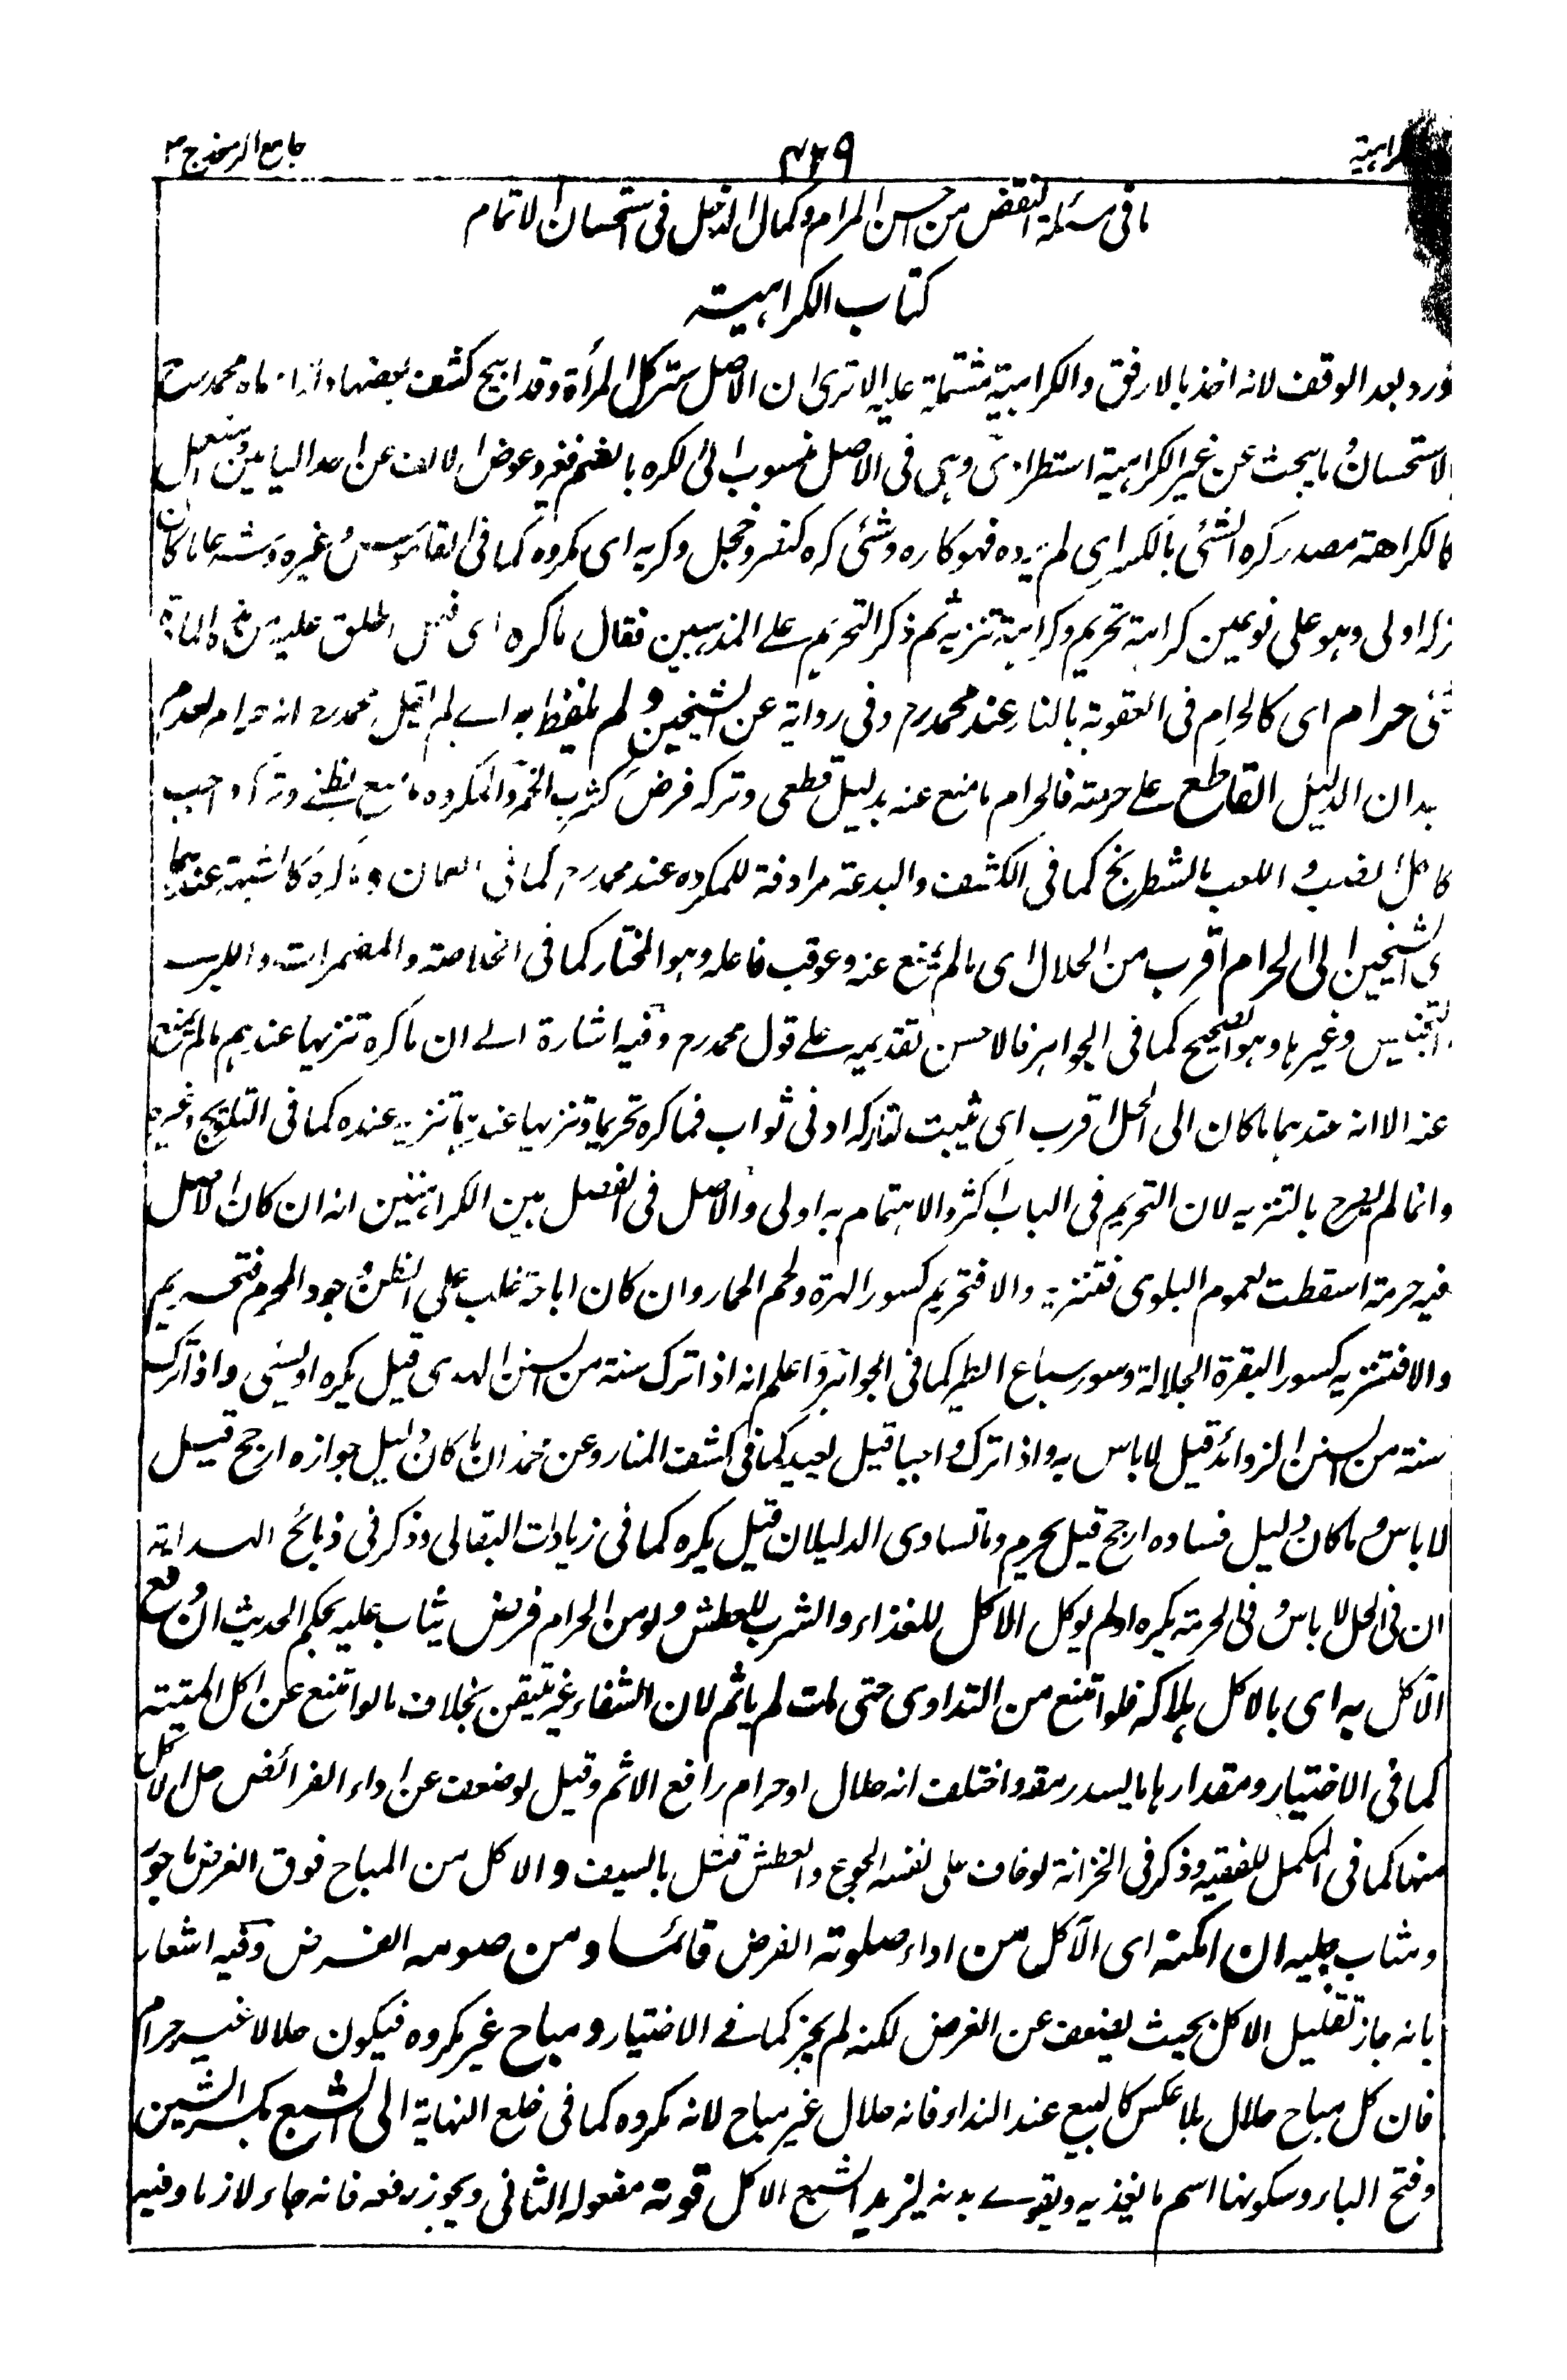 جامع الرموز ج ٣
٤٢٩
ما فى مسئلة النقض من حسن المرام وكمال الدخيل فى استحسان الاتمام
كتاب الكراهية
اورد بعد الوقف لانه اخذ بالارفق والكراهية مشتملة عليه الا ترى ان الاصل ستر كل المرأة وقد ابيح كشف بعضها محمد
الاستحسان وما يبحث عن غير الكراهية استطرادى وهى فى الاصل منسوب الى الكره بالضم فغير وعوض الالف عن احد اليائين
كالكراهة مصدر كره الشئ بالكسر اى لم يرده فهو كاره وشئ كره كنصر وخجل وكريه اى مكروه كما فى القاموس وغيره وشرعا ما كان
تركه اولى وهو على نوعين كراهة تحريم وكراهية تنزيه ثم ذكر التحريم على المذهبين فقال ما كره اى اطلق عليه
شئ حرام اى كالحرام فى العقوبة بالنار عند محمد رح وفى رواية عن الشيخين ولم يلفظ به اى لم يقل محمد رح انه حرام لعدم
ان الدليل القاطع على حرمته فالحرام ما منع عنه بدليل قطعى وتركه فرض كشرب الخمر والمكروه ما منع بظنى وتركه واجب
كاكل الضب واللعب بالشطرنج كما فى الكشف والبدعة مرادفة للمكروه عند محمد رح كما فى كالشبهة عندهما
اى الشيخين الى الحرام اقرب من الحلال اى ما لم يمنع عنه وعوقب فاعله وهو المختار كما فى الخلاصة والمضمرات
التجنيس وغيرها وهو الصحيح كما فى الجواهر فالاحسن تقديمه على قول محمد رح وفيه اشارة الى ان ما كره تنزيها عندهم ما لم يمنع
عنه الا انه عندهما ما كان الى الحل اقرب اى يثبت لتاركه ادنى ثواب فما كره تحريما وتنزيها عندهما تنزيه عنده كما فى التلويح وغيره
وانما لم يصرح بالتنزيه لان التحريم فى الباب اكثر والاهتمام به اولى والاصل فى الفصل بين الكراهتين انه ان كان الاصل
فيه حرمة اسقطت لعموم البلوى فتنزيه والا فتحريم كسور الهرة ولحم الحمار وان كان اباحة غلب على الظن وجود المحرم فتحريم
والا فتنزيه كسور البقرة الجلالة وسور سباع الطير كما فى الجواهر واعلم انه اذا ترك سنة من سنن الهدى قيل يكره او يسئ واذا ترك
سنة من السنن الزوائد قيل لا باس به واذا ترك واجبا قيل يعيد كما فى كشف المنار وعن محمد ان ما كان دليل جوازه ارجح قيل
لا باس وما كان دليل فساده ارجح قيل يحرم وما تساوى الدليلان قيل يكره كما فى زيادات البقالى وذكر فى ذبائح الهداية
ان فى الحل لا باس وفى الحرمة يكره او لم يوكل الاكل للغذاء والشرب للعطش ولو من الحرام فرض يثاب عليه بحكم الحديث ان دفع
الآكل به اى بالاكل هلاكه فلو امتنع من التداوى حتى مات لم ياثم لان الشفاء غير متيقن بخلاف ما لو امتنع عن اكل الميتة
كما فى الاختيار ومقدارها ما يسد رمقه واختلف انه حلال او حرام رافع الاثم وقيل لو ضعف عن اداء الفرائض حل الاكل
منها كما فى المكمل للفقيه وذكر فى الخزانة لو خاف على نفسه الجوع والعطش قتل بالسيف والاكل من المباح فوق الفرض ماجور
ومثاب عليه ان امكنه اى الآكل من اداء صلوته الفرض قائما ومن صومه الفرض وفيه اشعار
بانه جاز تقليل الاكل بحيث يضعف عن الفرض لكنه لم يجز كما فى الاختيار ومباح غير مكروه فيكون حلالا غير حرام
فان كل مباح حلال بلا عكس كالبيع عند النداء فانه حلال غير مباح لانه مكروه كما فى خلع النهاية الى الشبع بكسر الشين
وفتح الباء وسكونها اسم ما يغذيه ويقوى بدنه ليزيد الشبع الاكل قوته مفعوله الثانى ويجوز رفعه فانه جاء لازما وفيه